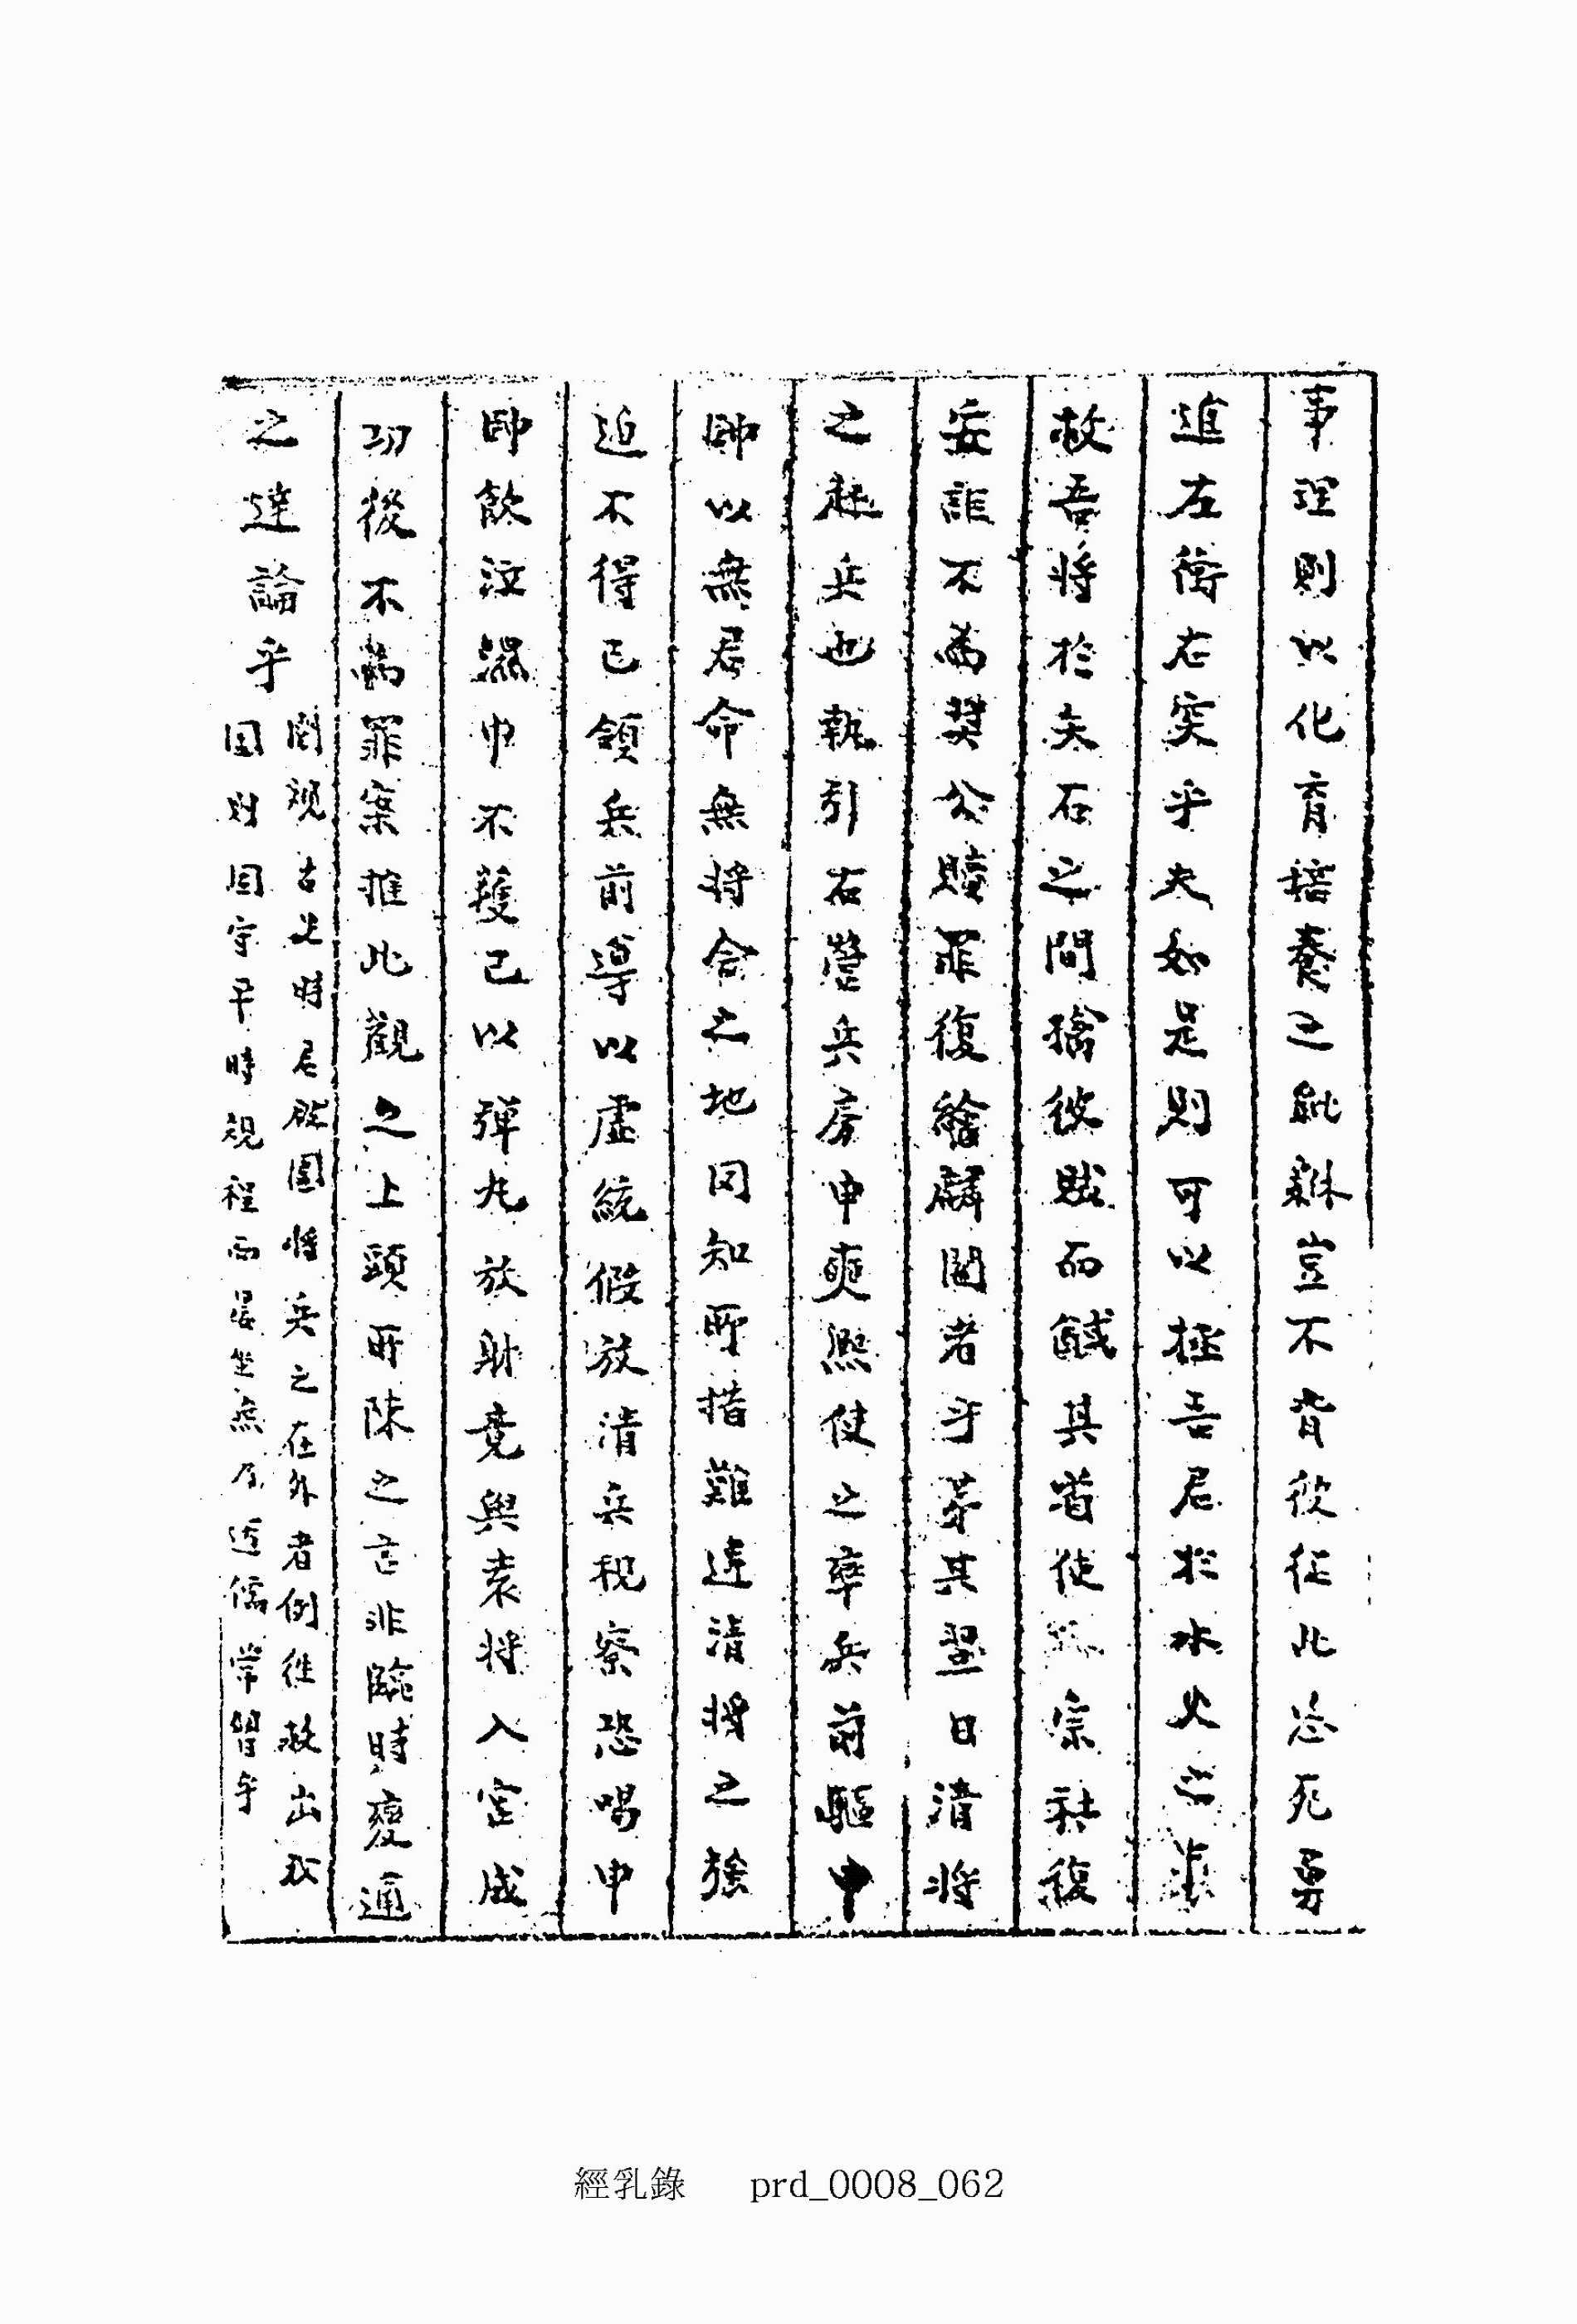 事理則以化育培養之毓斞豈不背彼從此忘死勇
進左衝右突乎夫如是則可以拯吾君於水火之
救吾將於矢石之間擒彼賊而馘其首使宗社復
安詎不為奬公贖罪復繪麟閣者乎芽其翌日清將
之起兵也執引右營兵房申奭熙使之率兵前驅申
帥以無君命無將令之地罔知所措難違清將之強
迫不得已領兵前導以虛統假放清兵稅察恐喝申
帥飲泣濕巾不獲已以彈丸放射竟與袁將入宮成
功後不為罪案推此觀之上頭所陳之言非臨時變通
之達論乎
閱視古史時君啟圍將兵之在外者例徃救出我
國則固守平時規程而晏坐無乃迂儒常習乎
經乳錄 prd_0008_062